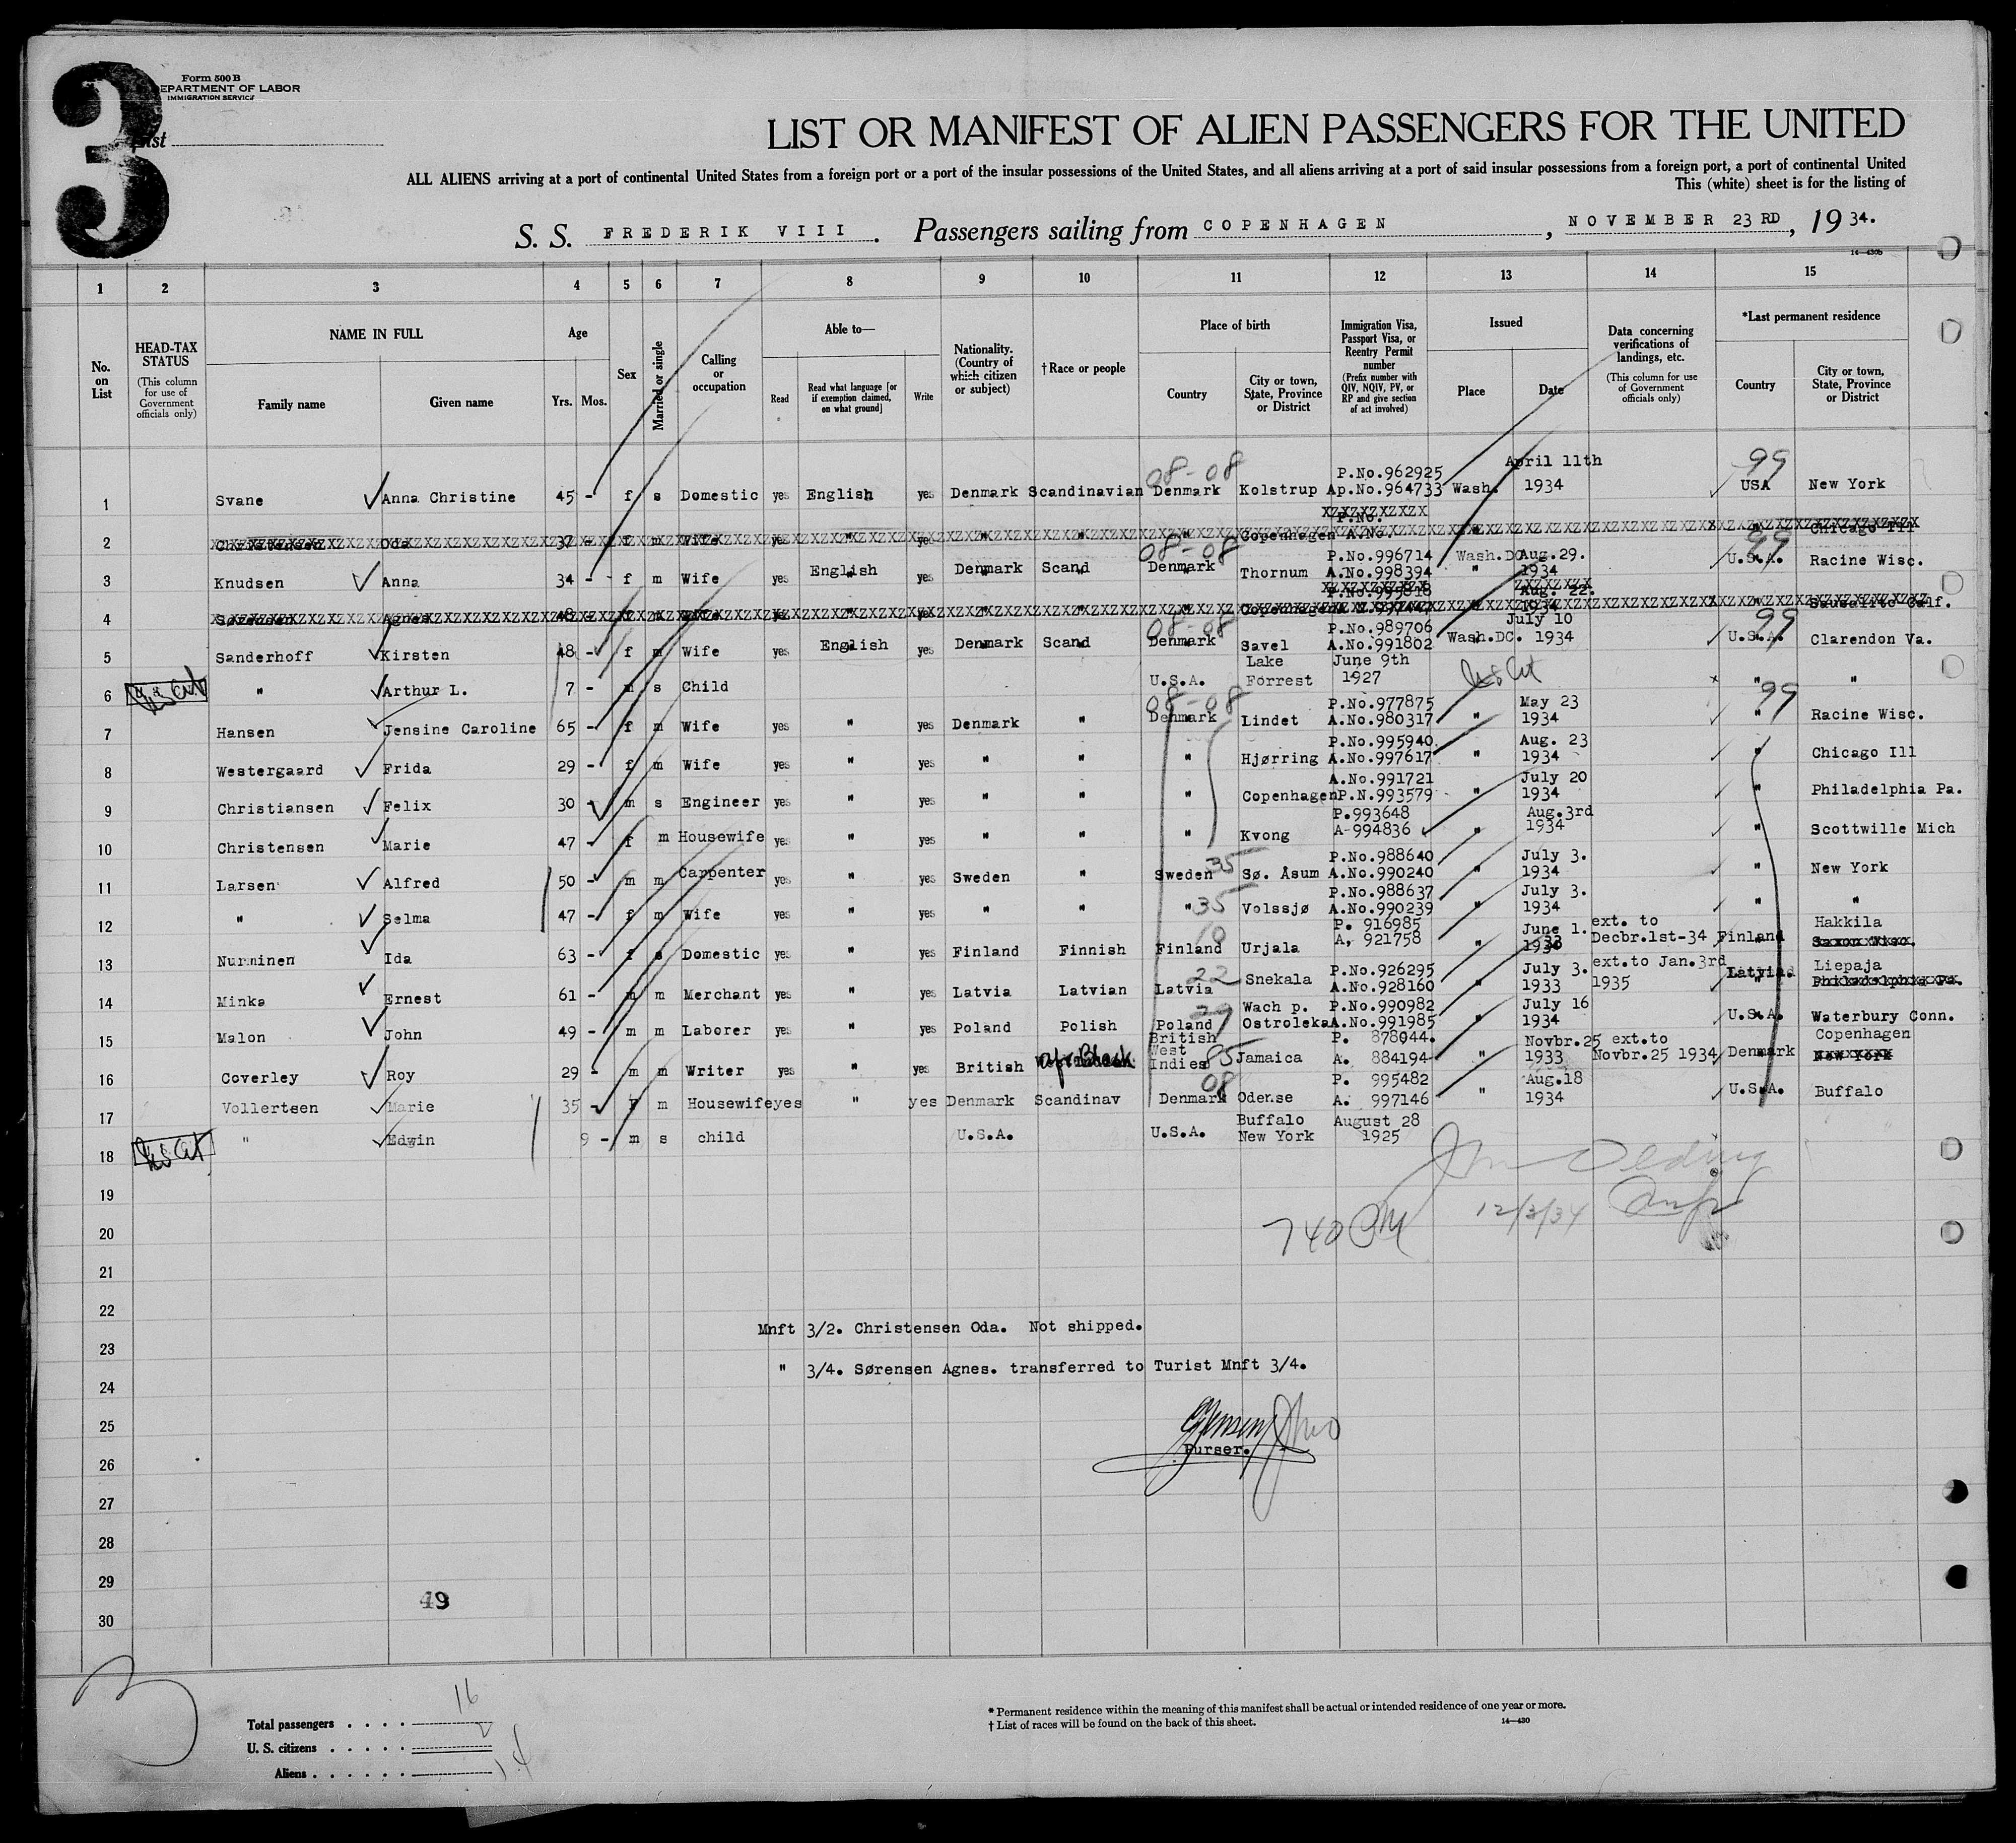 3
Form 500 B
EPARTMENT OF LABOR
IMMIGRATION SERVICE
LIST OR MANIFEST OF ALIEN PASSENGERS FOR THE UNITED
ALL ALIENS arriving at a port of continental United States from a foreign port or a port of the insular possessions of the United States, and all aliens arriving at a port of said insular possessions from a foreign port, a port of continental United
This (white) sheet is for the listing of
S. S. FREDERIK VIII. Passengers sailing from COPENHAGEN, NOVEMBER 23RD, 1934.
14—430b
1 2 3 4 5 6 7 8 9 10 11 12 13 14 15
No. on List
HEAD-TAX STATUS (This column for use of Government officials only)
NAME IN FULL Family name Given name
Age Yrs. Mos.
Sex
Married or single
Calling or occupation
Able to— Read Read what language [or if exemption claimed, on what ground] Write
Nationality. (Country of which citizen or subject)
†Race or people
Place of birth Country City or town, State, Province or District
Immigration Visa, Passport Visa, or Reentry Permit number (Prefix number with QIV, NQIV, PV, or RP and give section of act involved)
Issued Place Date
Data concerning verifications of landings, etc. (This column for use of Government officials only)
*Last permanent residence Country City or town, State, Province or District
08-08 P.No.962925 April 11th 99
1 Svane Anna Christine 45 - f s Domestic yes English yes Denmark Scandinavian Denmark Kolstrup Ap.No.964733 Wash. 1934 USA New York
P.No.
2 Christensen Oda 37 - f m Wife yes " yes " " " Copenhagen A.No. " " Chicago Ill
08-08 P.No.996714 Wash.DC Aug.29. 99
3 Knudsen Anna 34 - f m Wife yes English yes Denmark Scand Denmark Thornum A.No.998394 " 1934 U.S.A. Racine Wisc.
P.No.995818 Aug. 22.
4 Sørensen Agnes 48 - f m Wife yes " yes " " " Copenhagen 1934 " Sausalito Calf.
08-08 P.No.989706 July 10 99
5 Sanderhoff Kirsten 48 - f m Wife yes English yes Denmark Scand Denmark Savel A.No.991802 Wash.DC. 1934 U.S.A. Clarendon Va.
Lake June 9th
6 US Cit " Arthur L. 7 - m s Child U.S.A. Forrest 1927 US Cit " "
08-08 P.No.977875 May 23 99
7 Hansen Jensine Caroline 65 - f m Wife yes " yes Denmark " Denmark Lindet A.No.980317 " 1934 " Racine Wisc.
P.No.995940 Aug. 23
8 Westergaard Frida 29 - f m Wife yes " yes " " " Hjørring A.No.997617 " 1934 " Chicago Ill
A.No.991721 July 20
9 Christiansen Felix 30 - m s Engineer yes " yes " " " Copenhagen P.N.993579 " 1934 " Philadelphia Pa.
P.993648 Aug.3rd
10 Christensen Marie 47 - f m Housewife yes " yes " " " Kvong A-994836 " 1934 " Scottwille Mich
35 P.No.988640 July 3.
11 Larsen Alfred 50 - m m Carpenter yes " yes Sweden " Sweden Sø. Åsum A.No.990240 " 1934 " New York
35 P.No.988637 July 3.
12 " Selma 47 - f m Wife yes " yes " " " Volssjø A.No.990239 " 1934 " "
10 P. 916985 June 1. ext. to Hakkila
13 Nurminen Ida 63 - f s Domestic yes " yes Finland Finnish Finland Urjala A. 921758 " 1933 Decbr.1st-34 Finland Saxon Wisc.
22 P.No.926295 July 3. ext.to Jan.3rd Liepaja
14 Minka Ernest 61 - m m Merchant yes " yes Latvia Latvian Latvia Snekala A.No.928160 " 1933 1935 Latvia. Philadelphia Pa.
29 Wach p. P.No.990982 July 16
15 Malon John 49 - m m Laborer yes " yes Poland Polish Poland Ostroleka A.No.991985 " 1934 U.S.A. Waterbury Conn.
British West Indies 85 P. 878944. Novbr.25 ext.to Copenhagen
16 Coverley Roy 29 - m m Writer yes " yes British Afr. Black Jamaica A. 884194 " 1933 Novbr.25 1934 Denmark New York
08 P. 995482 Aug.18
17 Vollertsen Marie 35 - f m Housewife yes " yes Denmark Scandinav Denmark Odense A. 997146 " 1934 U.S.A. Buffalo
Buffalo August 28
18 US Cit " Edwin 9 - m s child U.S.A. U.S.A. New York 1925
19
20 740 PM 12/3/34
21
22
Mnft 3/2. Christensen Oda. Not shipped.
23
" 3/4. Sørensen Agnes. transferred to Turist Mnft 3/4.
24
25
Purser.
26
27
28
29
49
30
3
Total passengers . . . . 16
U. S. citizens . . . . . 2
Aliens . . . . . . 14
* Permanent residence within the meaning of this manifest shall be actual or intended residence of one year or more.
† List of races will be found on the back of this sheet. 14—430